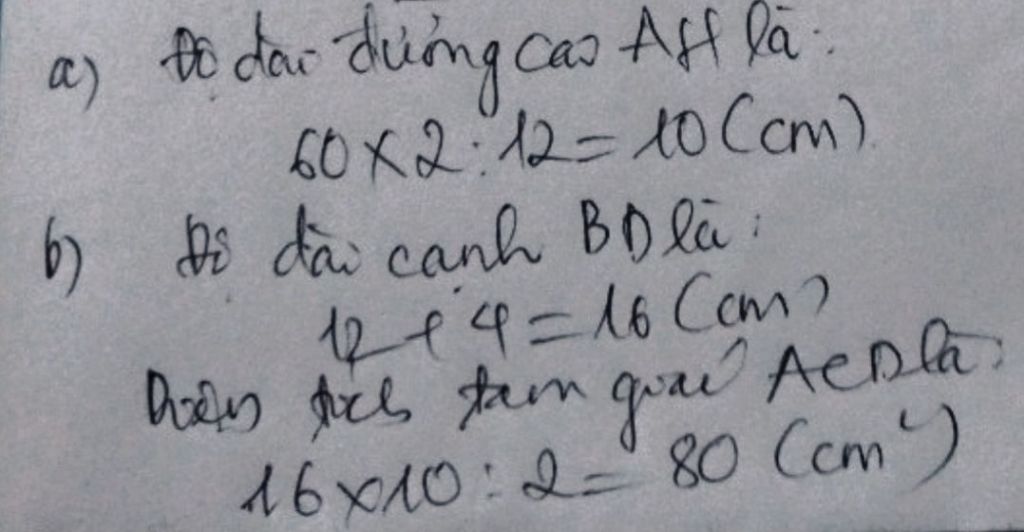 a) Độ dài đường cao AH là:
60 x 2 : 12 = 10 (cm)
b) Độ dài cạnh BD là:
12 + 4 = 16 (cm)
Diện tích tam giác ACD là:
16 x 10 : 2 = 80 (cm²)